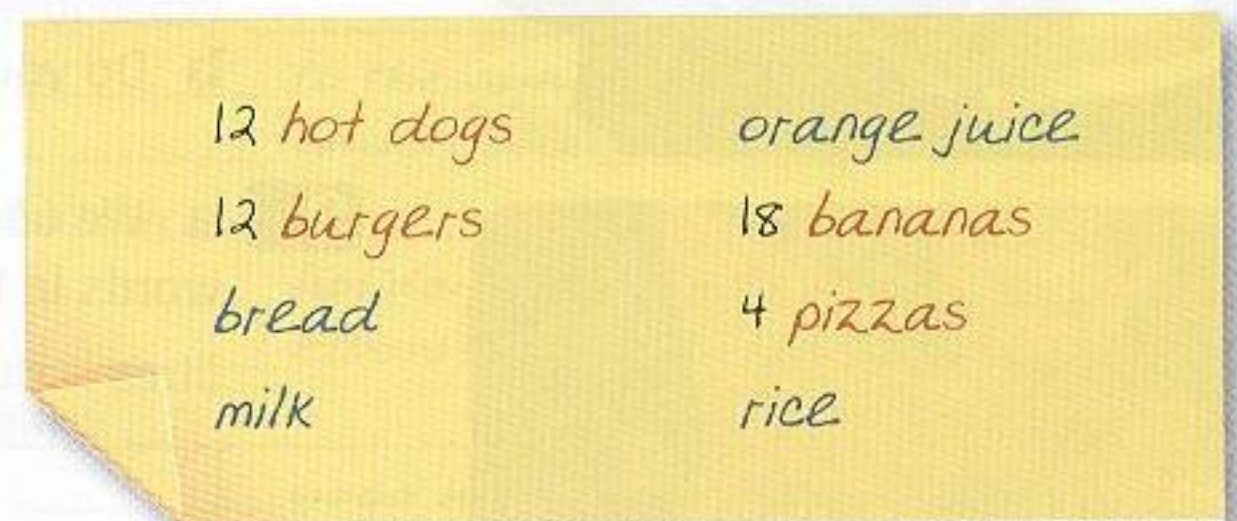 12 hot dogs
12 burgers
bread
milk
orange juice
18 bananas
4 pizzas
rice